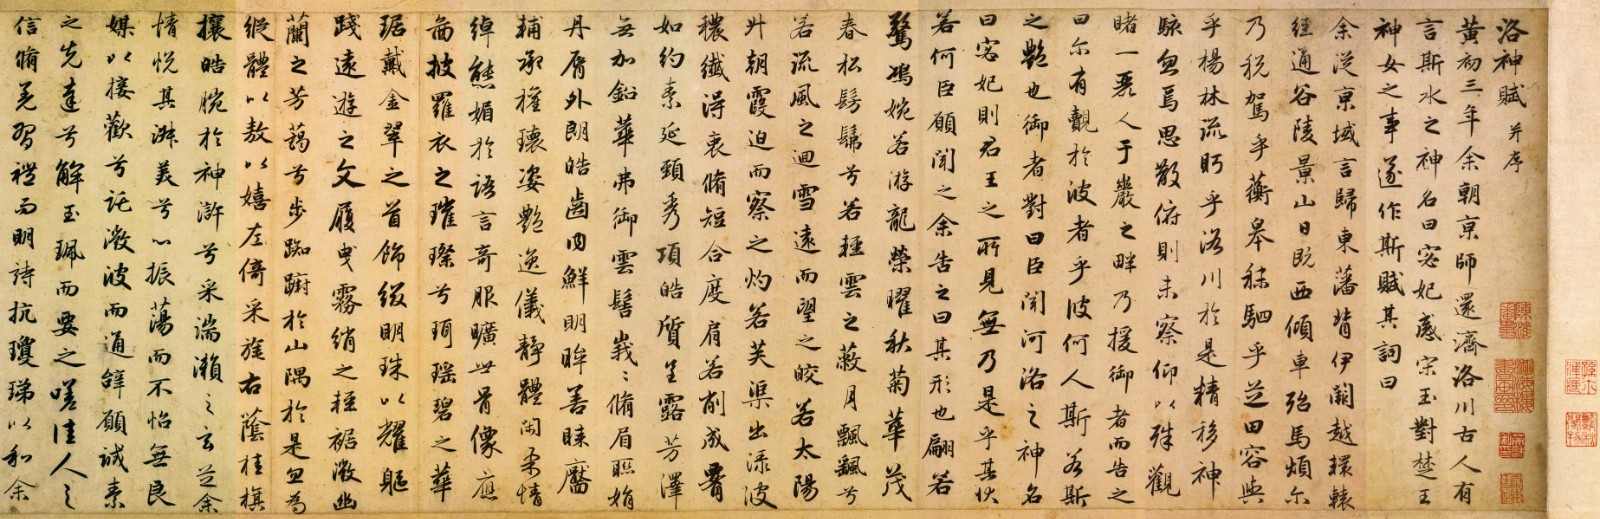 洛神賦并序
黃初三年余朝京師還濟洛川古人有
言斯水之神名曰宓妃感宋玉對楚王
神女之事遂作斯賦其詞曰
余從京域言歸東藩背伊闕越轘轅
經通谷陵景山日既西傾車殆馬煩尒
乃稅駕乎蘅皋秣駟乎芝田容與
乎楊林流眄乎洛川於是精移神
駭忽焉思散俯則未察仰以殊觀
睹一麗人于巖之畔乃援御者而告之
曰尒有覿於彼者乎彼何人斯若斯
之艷也御者對曰臣聞河洛之神名
曰宓妃則君王之所見無乃是乎其狀
若何臣願聞之余告之曰其形也翩若
驚鴻婉若游龍榮曜秋菊華茂
春松髣髴兮若輕雲之蔽月飄颻兮
若流風之迴雪遠而望之皎若太陽
升朝霞迫而察之灼若芙渠出淥波
穠纖得衷脩短合度肩若削成腰
如約素延頸秀項皓質呈露芳澤
無加鉛華弗御雲髻峩〻脩眉聯娟
丹脣外朗皓齒內鮮明眸善睞靨
輔承權瓌姿艷逸儀靜體閑柔情
綽態媚於語言奇服曠世骨像應
圖披羅衣之璀璨兮珥瑤碧之華
琚戴金翠之首飾綴明珠以耀軀
踐遠遊之文履曳霧綃之輕裾微幽
蘭之芳藹兮步踟躕於山隅於是忽焉
縱體以敖以嬉左倚采旄右蔭桂旗
攘皓腕於神滸兮采湍瀨之玄芝余
情悅其淑美兮心振蕩而不怡無良
媒以接歡兮託微波而通辭願誠素
之先達兮解玉珮而要之嗟佳人之
信脩羌習禮而明詩抗瓊珶以和余